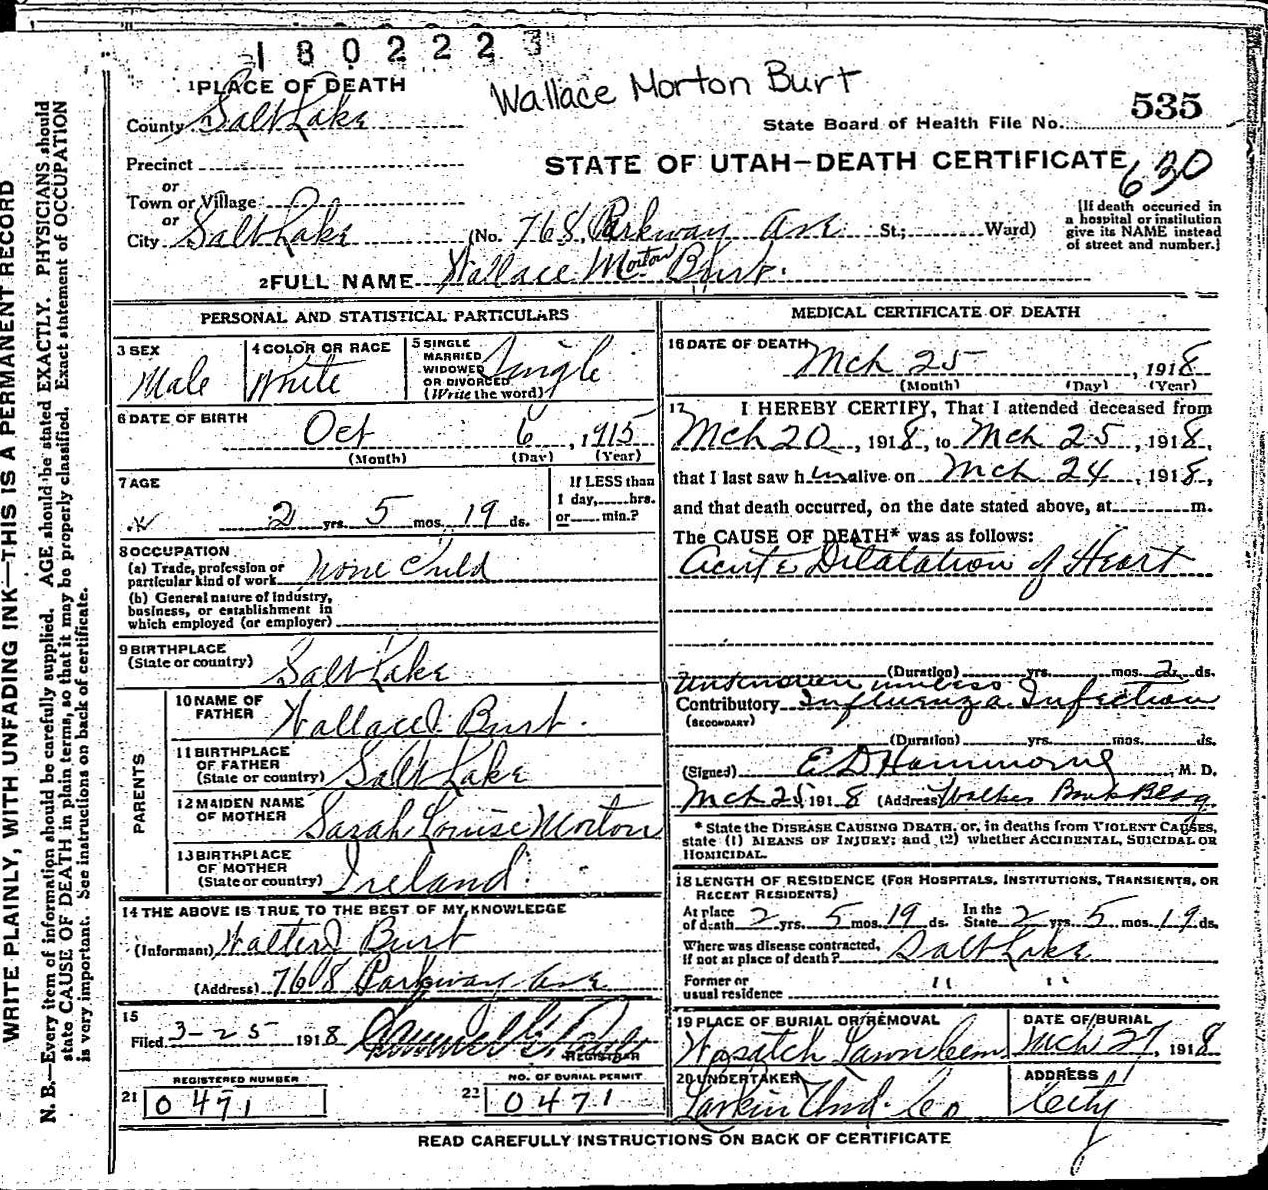 180222
Wallace Morton Burt
1 PLACE OF DEATH
County Salt Lake
State Board of Health File No. 535
Precinct
STATE OF UTAH—DEATH CERTIFICATE
630
or
Town or Village
or
City Salt Lake (No. 768 Parkway Ave St.; Ward)
[If death occurred in
a hospital or institution
give its NAME instead
of street and number.]
2 FULL NAME Wallace Morton Burt.
PERSONAL AND STATISTICAL PARTICULARS
3 SEX
Male
4 COLOR OR RACE
White
5 SINGLE
MARRIED
WIDOWED
OR DIVORCED
(Write the word)
Single
6 DATE OF BIRTH
Oct 6, 1915
(Month) (Day) (Year)
7 AGE
2 yrs. 5 mos. 19 ds.
If LESS than
1 day, hrs.
or min.?
8 OCCUPATION
(a) Trade, profession or
particular kind of work none Child
(b) General nature of industry,
business, or establishment in
which employed (or employer)
9 BIRTHPLACE
(State or country) Salt Lake
PARENTS
10 NAME OF
FATHER Wallace J. Burt.
11 BIRTHPLACE
OF FATHER
(State or country) Salt Lake
12 MAIDEN NAME
OF MOTHER Sarah Louise Morton
13 BIRTHPLACE
OF MOTHER
(State or country) Ireland.
14 THE ABOVE IS TRUE TO THE BEST OF MY KNOWLEDGE
(Informant) Walter J Burt
(Address) 768 Parkway Ave
15
Filed 3-25 1918
REGISTRAR
REGISTERED NUMBER
21 0471
NO. OF BURIAL PERMIT
22 0471
MEDICAL CERTIFICATE OF DEATH
16 DATE OF DEATH
Mch 25, 1918
(Month) (Day) (Year)
17 I HEREBY CERTIFY, That I attended deceased from
Mch 20, 1918, to Mch 25, 1918,
that I last saw him alive on Mch 24, 1918,
and that death occurred, on the date stated above, at m.
The CAUSE OF DEATH* was as follows:
Acute Dilatation of Heart
(Duration) yrs. mos. 2 ds.
Unknown unless
Contributory Influenza Infection
(SECONDARY)
(Duration) yrs. mos. ds.
(Signed) E D Hammond, M. D.
Mch 25 1918 (Address) Walker Bank Bldg.
* State the DISEASE CAUSING DEATH, or, in deaths from VIOLENT CAUSES,
state (1) MEANS OF INJURY; and (2) whether ACCIDENTAL, SUICIDAL OR
HOMICIDAL.
18 LENGTH OF RESIDENCE (FOR HOSPITALS, INSTITUTIONS, TRANSIENTS, OR
RECENT RESIDENTS)
At place
of death 2 yrs. 5 mos. 19 ds. In the
State 2 yrs. 5 mos. 19 ds.
Where was disease contracted,
if not at place of death? Salt Lake
Former or
usual residence " "
19 PLACE OF BURIAL OR REMOVAL
Wasatch Lawn Cem.
DATE OF BURIAL
Mch 27, 1918
20 UNDERTAKER
Larkin Und. Co
ADDRESS
City
READ CAREFULLY INSTRUCTIONS ON BACK OF CERTIFICATE
WRITE PLAINLY, WITH UNFADING INK—THIS IS A PERMANENT RECORD
N. B.—Every item of information should be carefully supplied. AGE should be stated EXACTLY. PHYSICIANS should
state CAUSE OF DEATH in plain terms, so that it may be properly classified. Exact statement of OCCUPATION
is very important. See instructions on back of certificate.